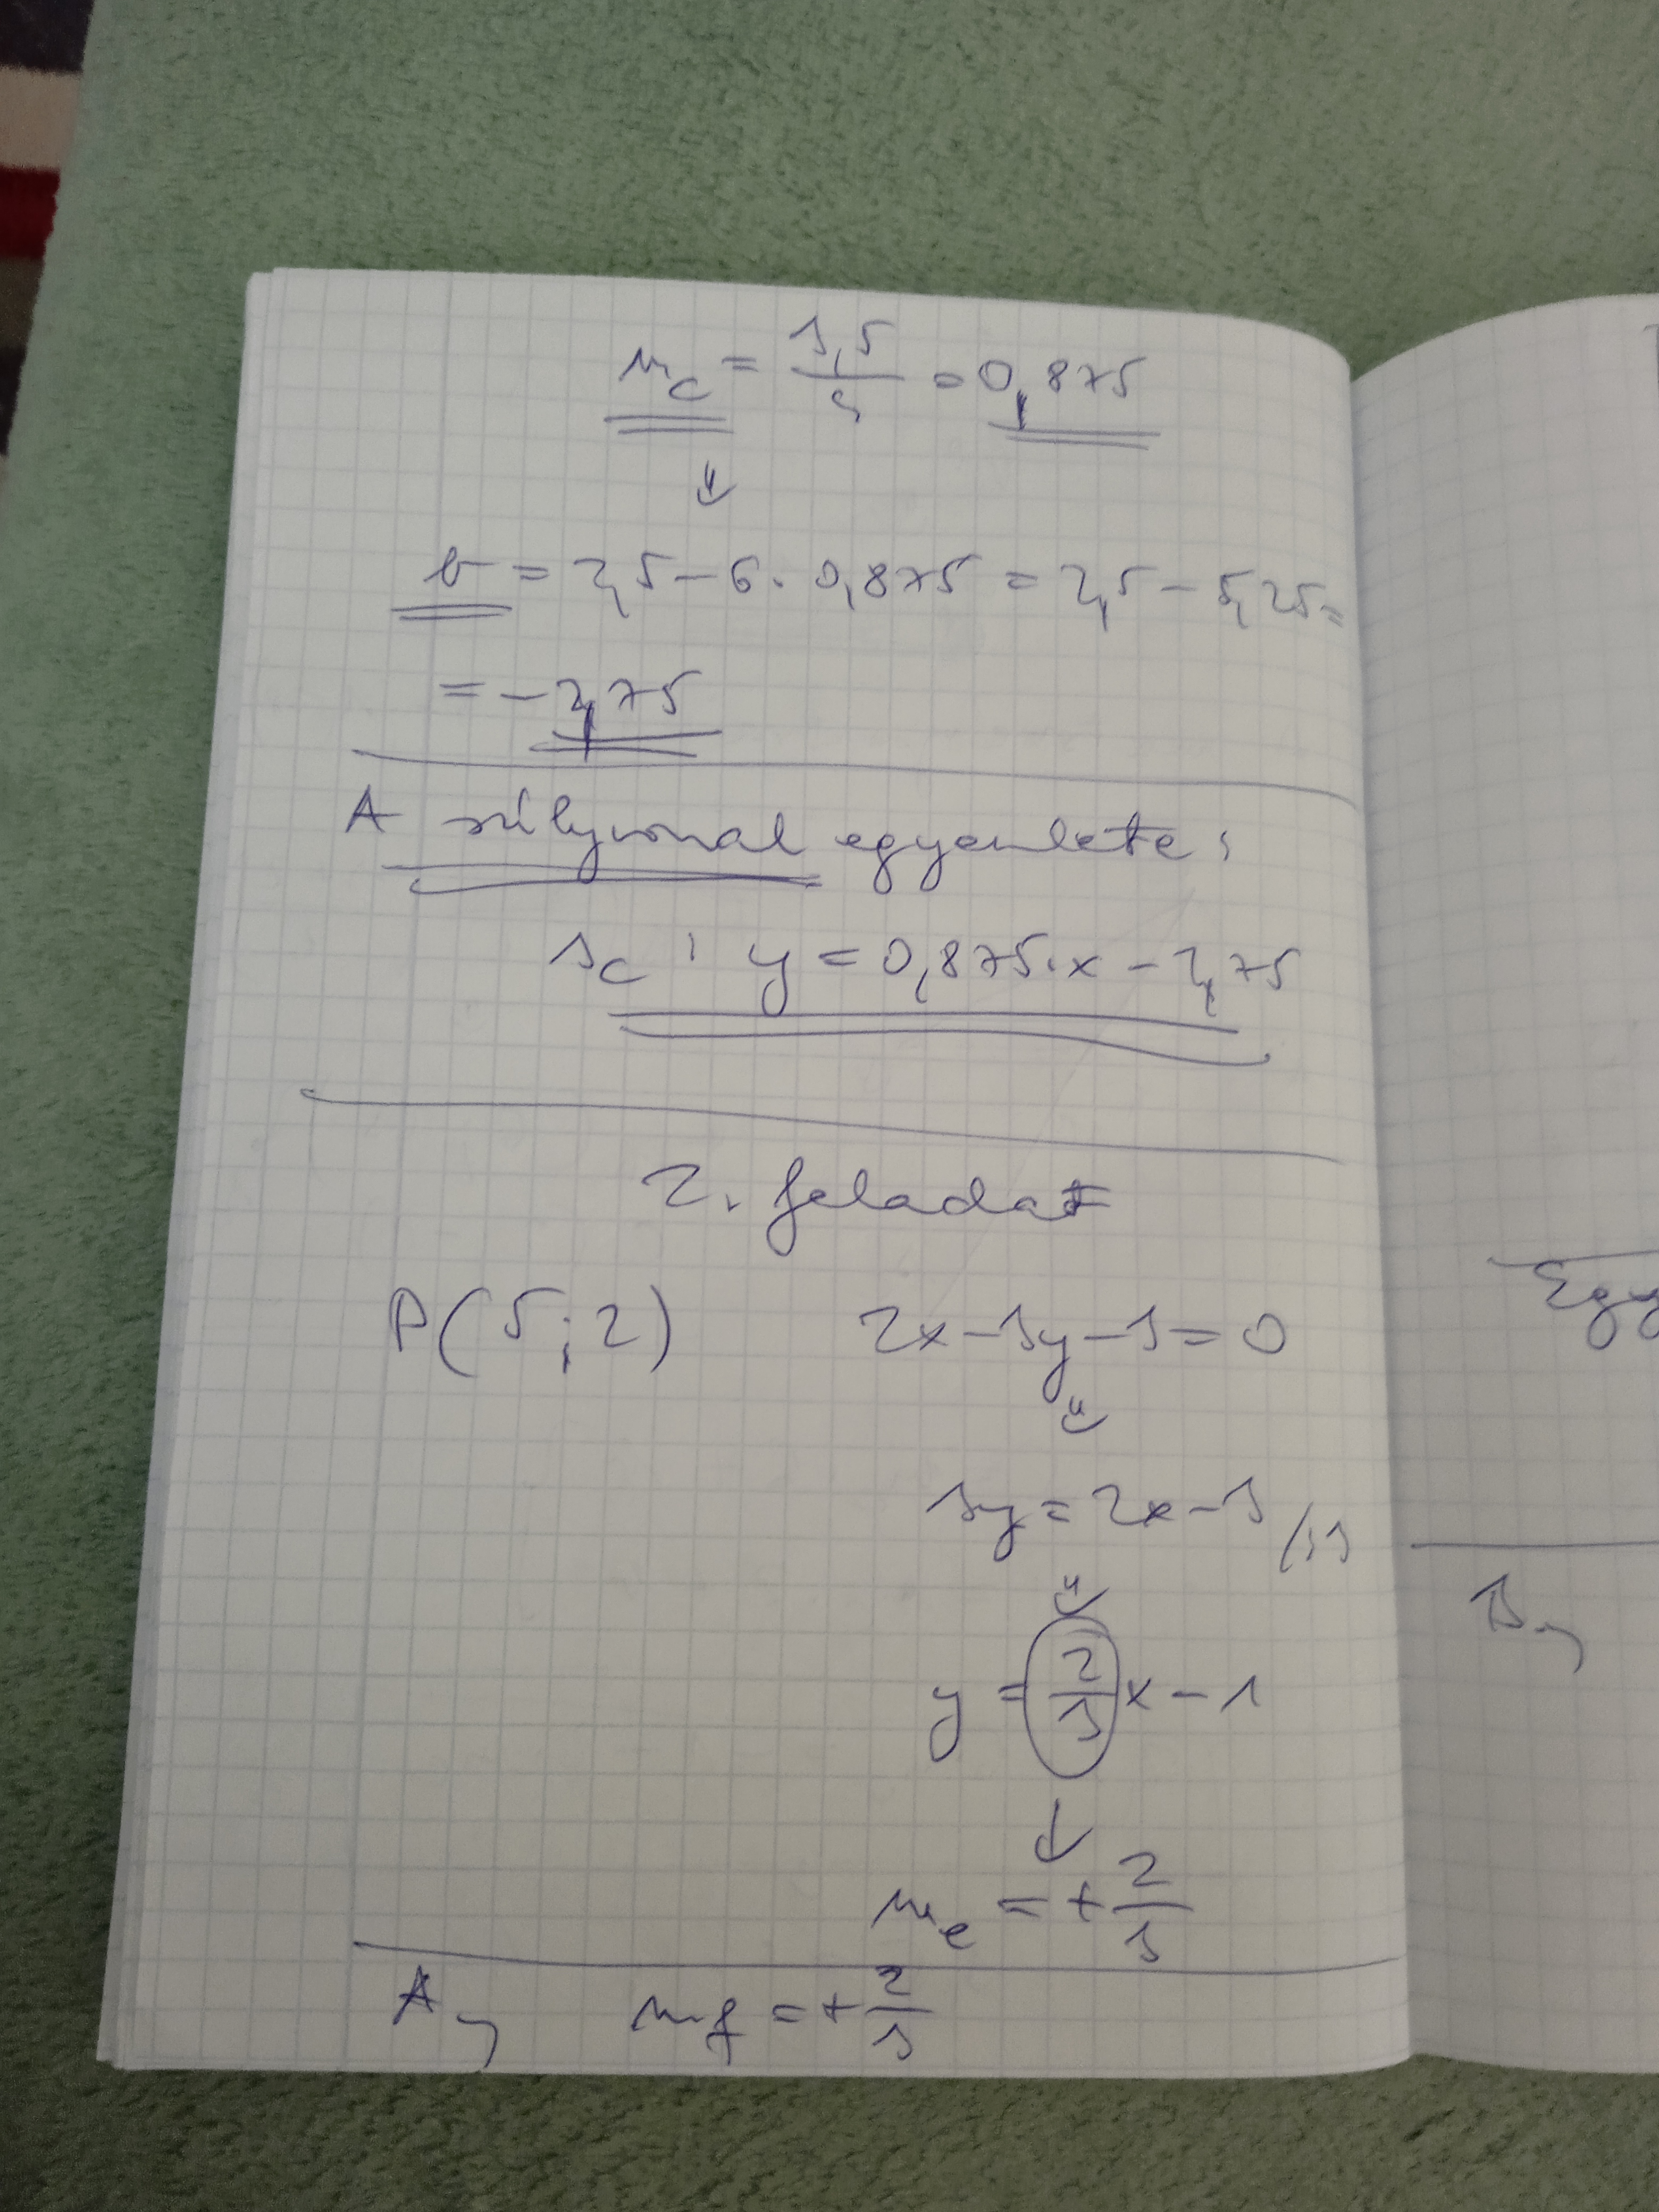 m_c = 3,5/4 = 0,875
⇓
b = 2,5 - 6 · 0,875 = 2,5 - 5,25 =
= - 2,75
A súlyvonal egyenlete:
s_c : y = 0,875·x - 2,75
2. feladat
P(5;2) 2x - 3y - 3 = 0
⇓
3y = 2x - 3 /:3
⇓
y = 2/3 x - 1
↓
m_e = + 2/3
A, m_f = + 2/3
Egy
B,